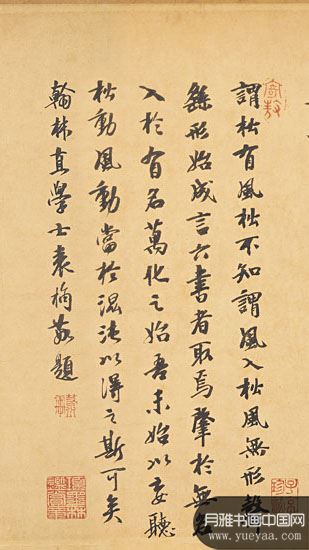 謂松有風松不知謂風入松風無形聲
繇形始成言六書者取焉肇於無名
入於有名萬化之始吾未始以妄聽
松動風動當於混沌以得之斯可矣
翰林直學士袁桷敬題
月雅书画中国网
www.yueyaa.com